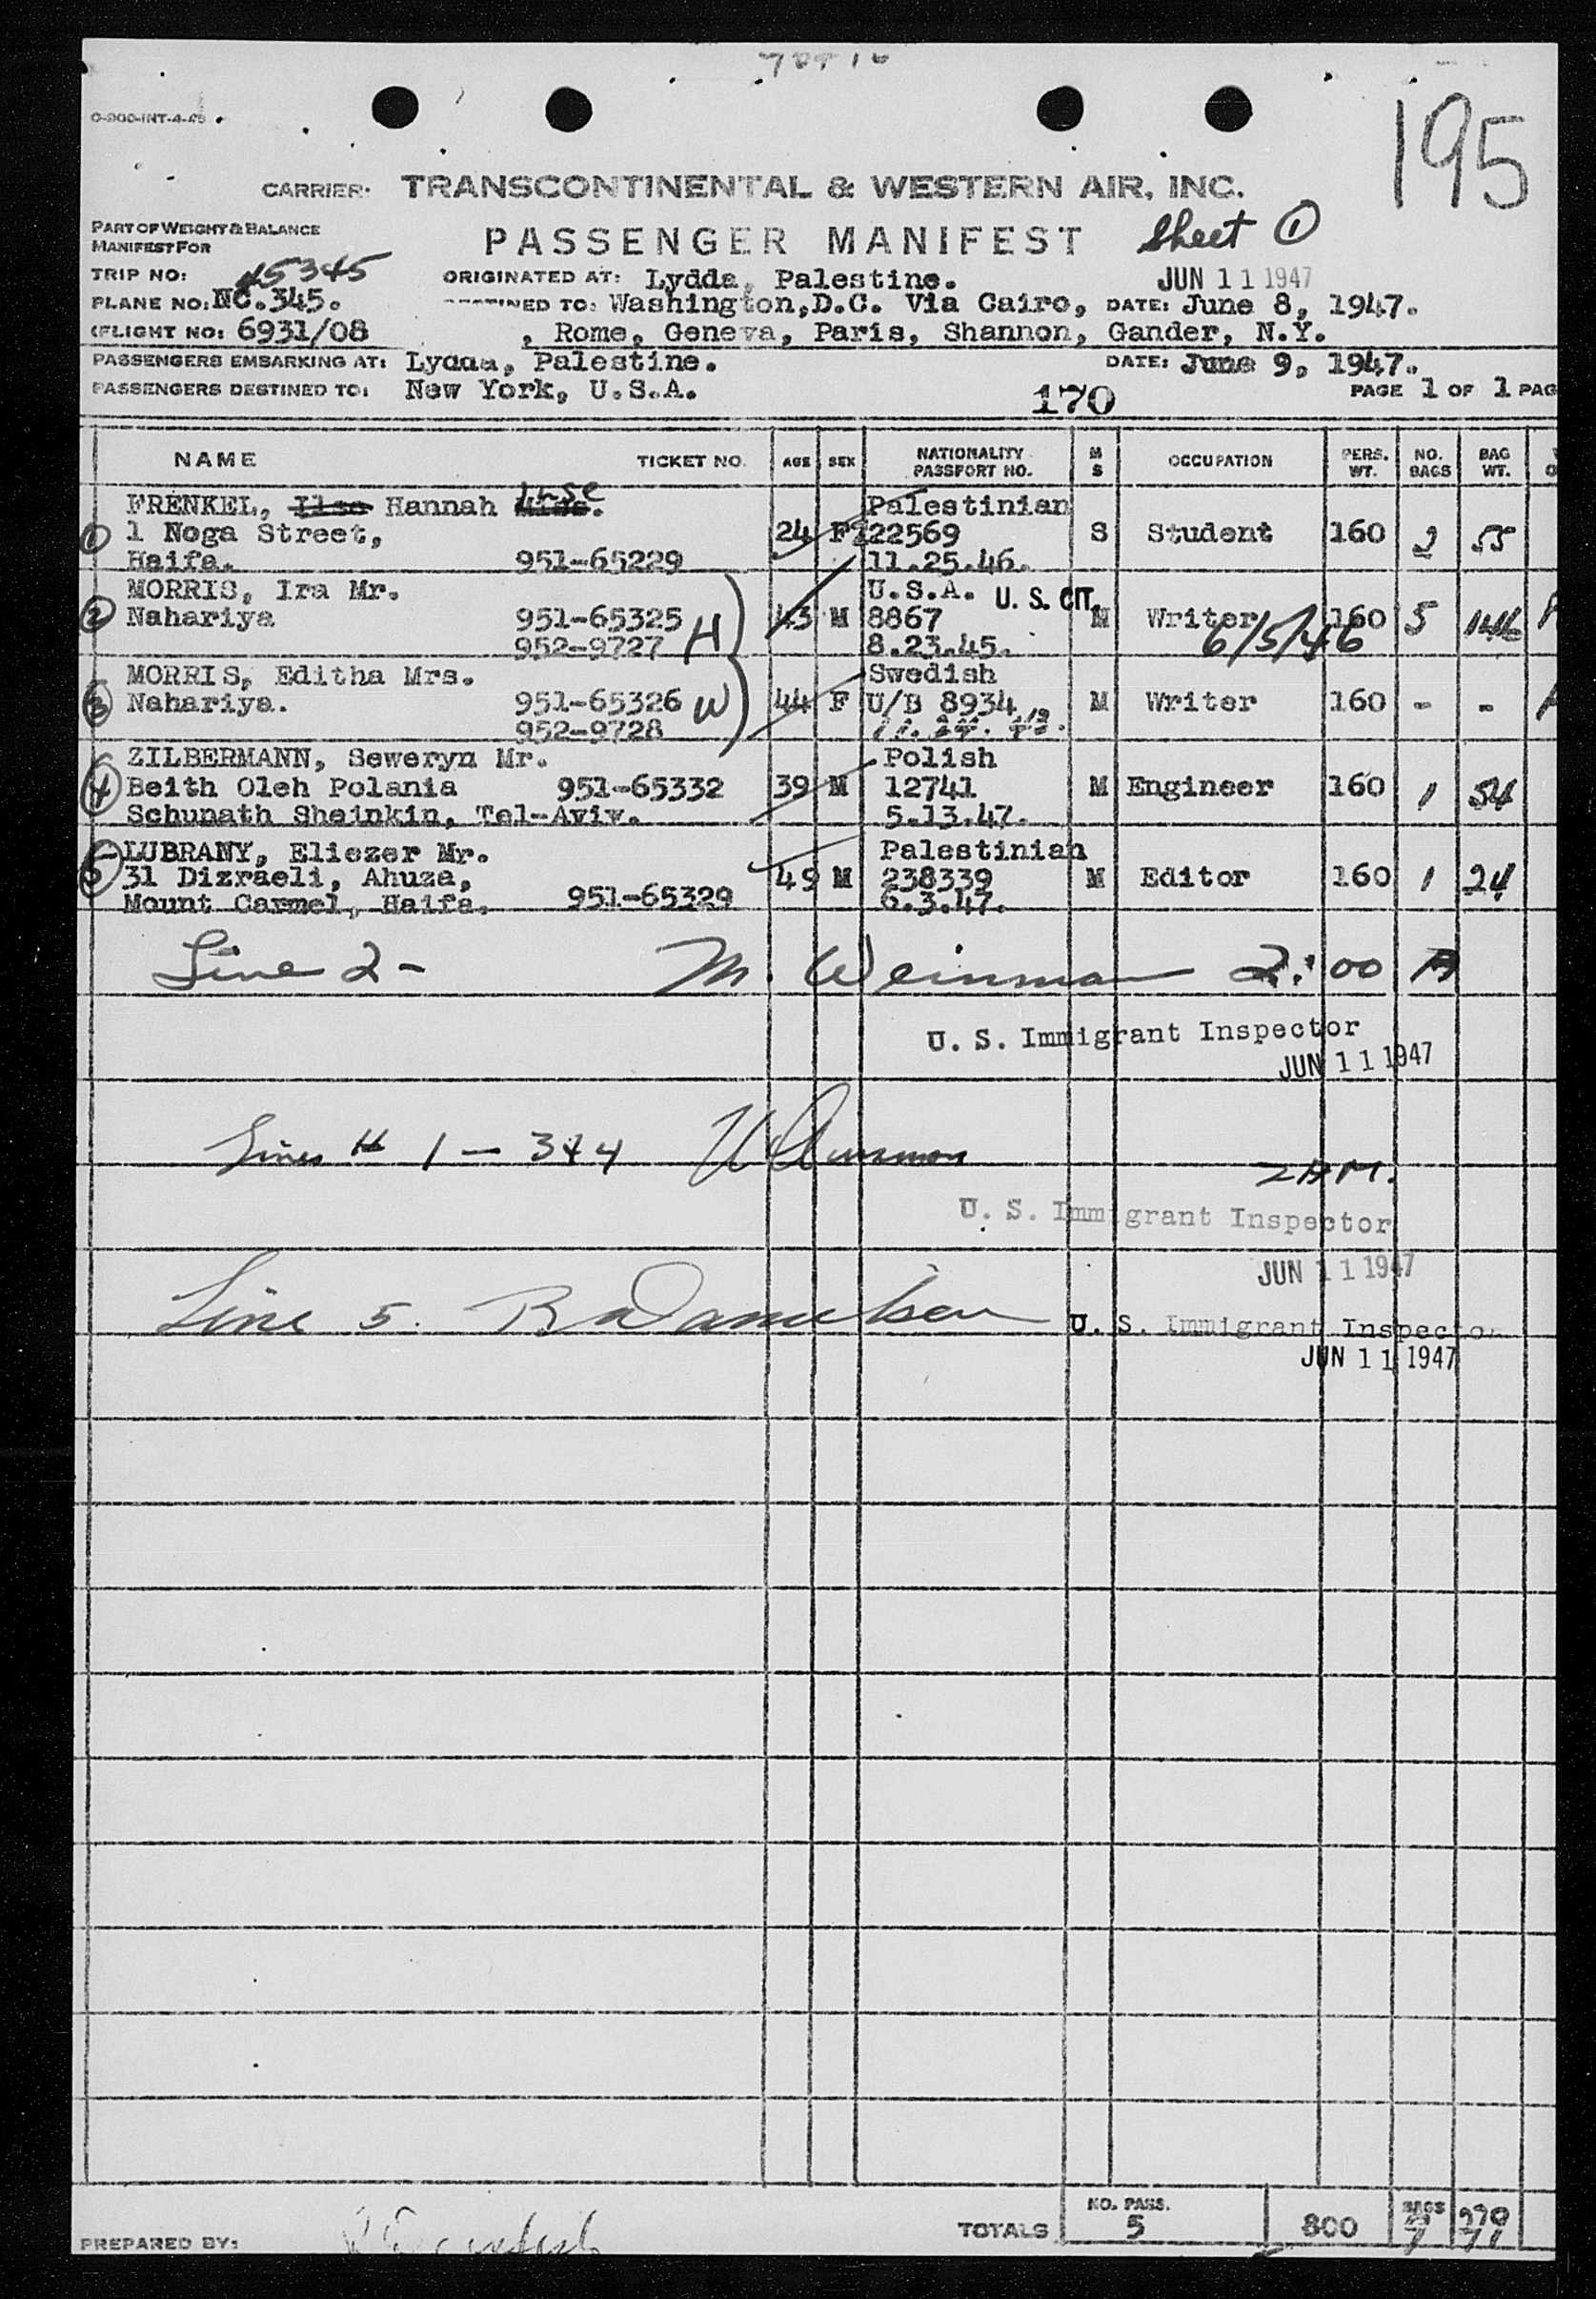 195
CARRIER: TRANSCONTINENTAL & WESTERN AIR, INC.
PART OF WEIGHT & BALANCE
MANIFEST FOR
PASSENGER MANIFEST Sheet 1
TRIP NO: 45345 ORIGINATED AT: Lydda, Palestine. JUN 11 1947
PLANE NO: NC.345. TO: Washington,D.C. Via Cairo, DATE: June 8, 1947.
FLIGHT NO: 6931/08 , Rome, Geneva, Paris, Shannon, Gander, N.Y.
PASSENGERS EMBARKING AT: Lydda, Palestine. DATE: June 9, 1947.
PASSENGERS DESTINED TO: New York, U.S.A. 170 PAGE 1 OF 1 PAG
NAME TICKET NO. AGE SEX NATIONALITY PASSPORT NO. M S OCCUPATION PERS. WT. NO. BAGS BAG WT.
FRENKEL, Ilse Hannah Miss. Ilse Palestinian
1 1 Noga Street, 24 F 122569 S Student 160 2 55
Haifa. 951-65229 11.25.46.
MORRIS, Ira Mr. U.S.A. U. S. CIT.
2 Nahariya 951-65325 H 43 M 8867 M Writer 160 5 146
952-9727 8.23.45. 6/5/46
MORRIS, Editha Mrs. Swedish
3 Nahariya. 951-65326 W 44 F U/B 8934 M Writer 160 - -
952-9728
ZILBERMANN, Seweryn Mr. Polish
4 Beith Oleh Polania 951-65332 39 M 12741 M Engineer 160 1 54
Schunath Sheinkin, Tel-Aviv. 5.13.47.
LUBRANY, Eliezer Mr. Palestinian
5 31 Dizraeli, Ahuza, 49 M 238339 M Editor 160 1 24
Mount Carmel, Haifa. 951-65329 6.3.47.
Line 2 - M. Weinman 2:00 A
U. S. Immigrant Inspector
JUN 11 1947
Lines # 1 - 3 & 4
2 AM.
U. S. Immigrant Inspector
JUN 11 1947
Line 5.
U. S. Immigrant Inspector
JUN 11 1947
PREPARED BY: TOTALS NO. PASS. 5 800 BAGS